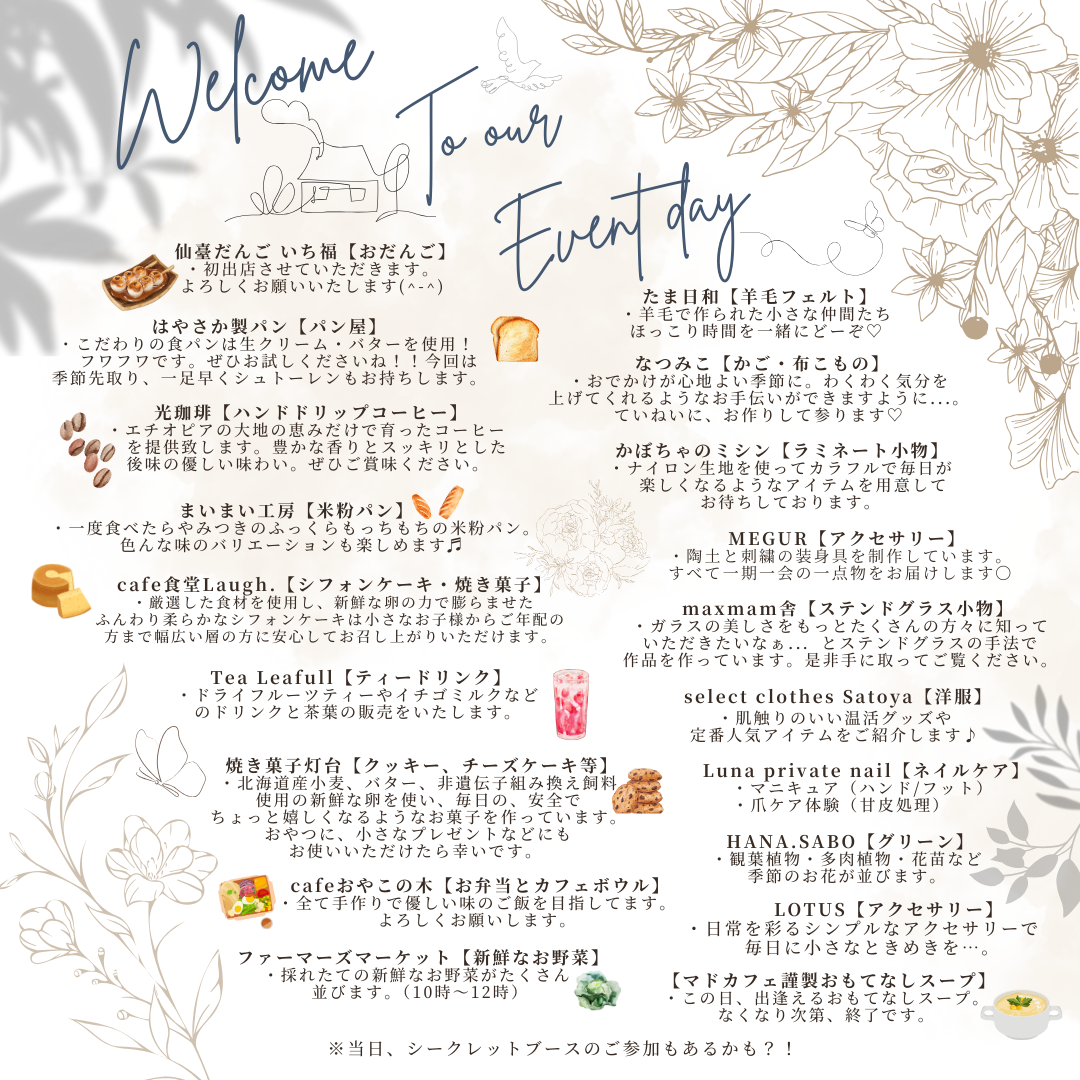 Welcome
To our
Event day
仙臺だんご いち福【おだんご】
・初出店させていただきます。
よろしくお願いいたします(^-^)
はやさか製パン【パン屋】
・こだわりの食パンは生クリーム・バターを使用！
フワフワです。ぜひお試しくださいね！！今回は
季節先取り、一足早くシュトーレンもお持ちします。
光珈琲【ハンドドリップコーヒー】
・エチオピアの大地の恵みだけで育ったコーヒー
を提供致します。豊かな香りとスッキリとした
後味の優しい味わい。ぜひご賞味ください。
まいまい工房【米粉パン】
・一度食べたらやみつきのふっくらもっちもちの米粉パン。
色んな味のバリエーションも楽しめます♬
cafe食堂Laugh.【シフォンケーキ・焼き菓子】
・厳選した食材を使用し、新鮮な卵の力で膨らませた
ふんわり柔らかなシフォンケーキは小さなお子様からご年配の
方まで幅広い層の方に安心してお召し上がりいただけます。
Tea Leafull【ティードリンク】
・ドライフルーツティーやイチゴミルクなど
のドリンクと茶葉の販売をいたします。
焼き菓子灯台【クッキー、チーズケーキ等】
・北海道産小麦、バター、非遺伝子組み換え飼料
使用の新鮮な卵を使い、毎日の、安全で
ちょっと嬉しくなるようなお菓子を作っています。
おやつに、小さなプレゼントなどにも
お使いいただけたら幸いです。
cafeおやこの木【お弁当とカフェボウル】
・全て手作りで優しい味のご飯を目指してます。
よろしくお願いします。
ファーマーズマーケット【新鮮なお野菜】
・採れたての新鮮なお野菜がたくさん
並びます。（10時～12時）
たま日和【羊毛フェルト】
・羊毛で作られた小さな仲間たち
ほっこり時間を一緒にどーぞ♡
なつみこ【かご・布こもの】
・おでかけが心地よい季節に。わくわく気分を
上げてくれるようなお手伝いができますように...。
ていねいに、お作りして参ります♡
かぼちゃのミシン【ラミネート小物】
・ナイロン生地を使ってカラフルで毎日が
楽しくなるようなアイテムを用意して
お待ちしております。
MEGUR【アクセサリー】
・陶土と刺繍の装身具を制作しています。
すべて一期一会の一点物をお届けします〇
maxmam舎【ステンドグラス小物】
・ガラスの美しさをもっとたくさんの方々に知って
いただきたいなぁ... とステンドグラスの手法で
作品を作っています。是非手に取ってご覧ください。
select clothes Satoya【洋服】
・肌触りのいい温活グッズや
定番人気アイテムをご紹介します♪
Luna private nail【ネイルケア】
・マニキュア（ハンド/フット）
・爪ケア体験（甘皮処理）
HANA.SABO【グリーン】
・観葉植物・多肉植物・花苗など
季節のお花が並びます。
LOTUS【アクセサリー】
・日常を彩るシンプルなアクセサリーで
毎日に小さなときめきを…。
【マドカフェ謹製おもてなしスープ】
・この日、出逢えるおもてなしスープ。
なくなり次第、終了です。
※当日、シークレットブースのご参加もあるかも？！